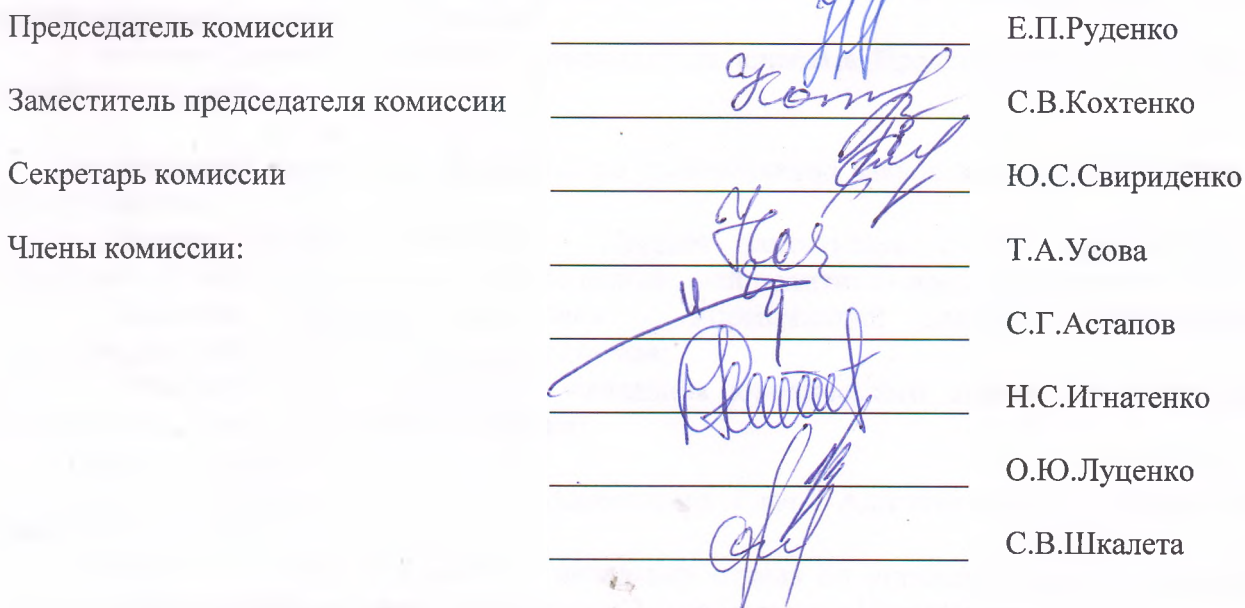 Председатель комиссии Е.П.Руденко
Заместитель председателя комиссии С.В.Кохтенко
Секретарь комиссии Ю.С.Свириденко
Члены комиссии: Т.А.Усова
С.Г.Астапов
Н.С.Игнатенко
О.Ю.Луценко
С.В.Шкалета